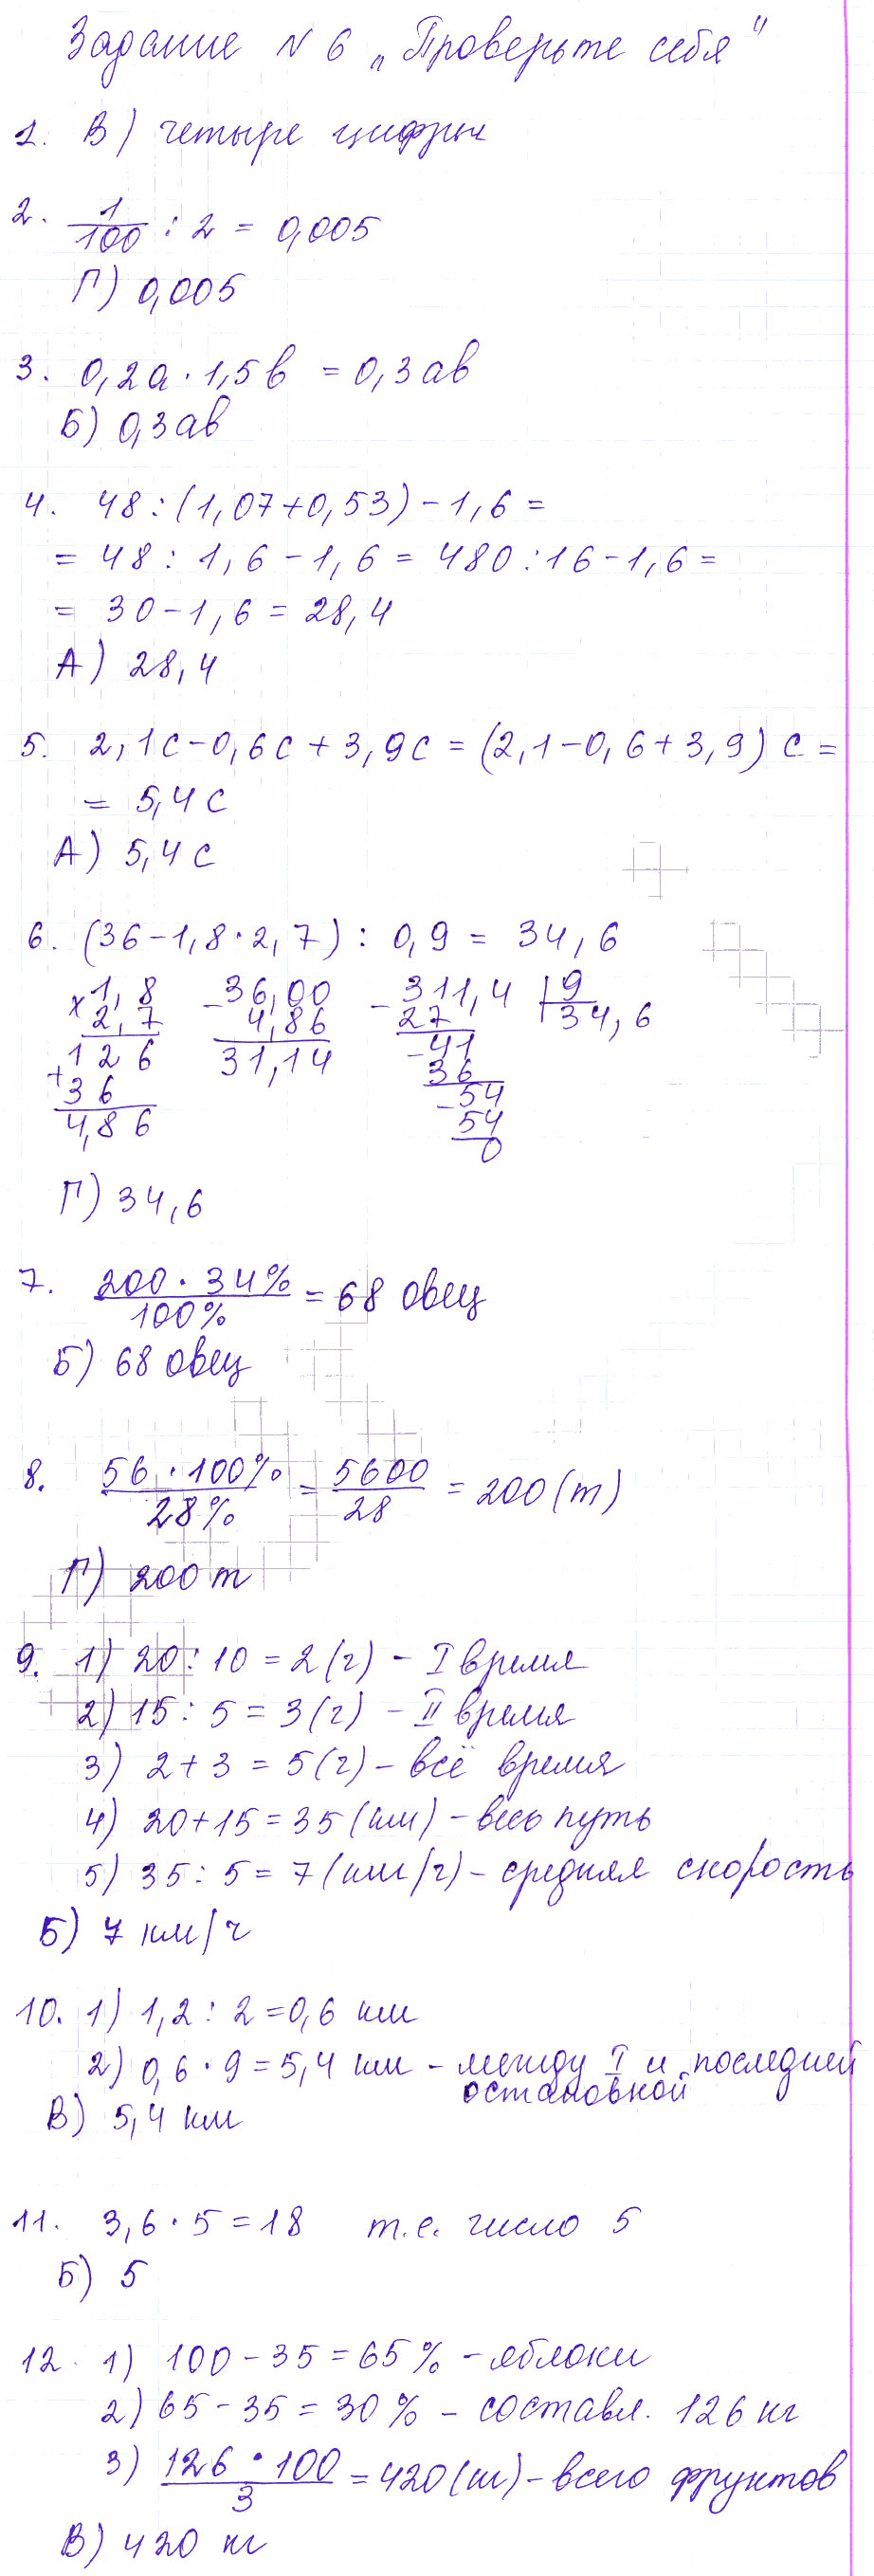 Задание № 6 „Проверьте себя"
1. В) четыре цифры
2. 1/100 : 2 = 0,005
Г) 0,005
3. 0,2а · 1,5в = 0,3ав
Б) 0,3ав
4. 48 : (1,07+0,53) - 1,6 =
= 48 : 1,6 - 1,6 = 480 : 16 - 1,6 =
= 30 - 1,6 = 28,4
А) 28,4
5. 2,1с - 0,6с + 3,9с = (2,1 - 0,6 + 3,9) с =
= 5,4с
А) 5,4с
6. (36 - 1,8 · 2,7) : 0,9 = 34,6
× 1,8 - 36,00 - 311,4 | 9
2,7 4,86 27 34,6
+ 126 31,14 - 41
36 36
4,86 - 54
54
0
Г) 34,6
7. 200 · 34% / 100% = 68 овец
Б) 68 овец
8. 56 · 100% / 28% = 5600 / 28 = 200 (т)
Г) 200 т
9. 1) 20 : 10 = 2 (ч) - I время
2) 15 : 5 = 3 (ч) - II время
3) 2 + 3 = 5 (ч) - всё время
4) 20 + 15 = 35 (км) - весь путь
5) 35 : 5 = 7 (км/ч) - средняя скорость
Б) 7 км/ч
10. 1) 1,2 : 2 = 0,6 км
2) 0,6 · 9 = 5,4 км - между I и последней
остановкой
В) 5,4 км
11. 3,6 · 5 = 18 т.е. число 5
Б) 5
12. 1) 100 - 35 = 65% - яблоки
2) 65 - 35 = 30% - составл. 126 кг
3) 126 · 100 / 3 = 420 (кг) - всего фруктов
В) 420 кг